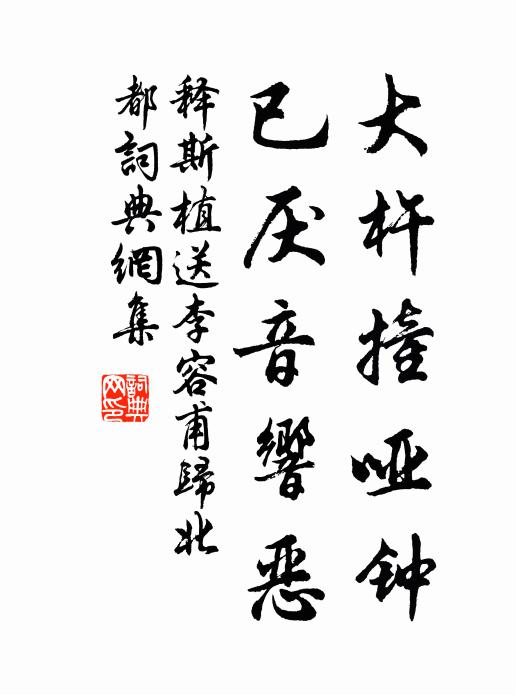 大杵撞哑钟
已厌音響恶
释斯植送李容甫歸北
都詞典網集
詞典网印